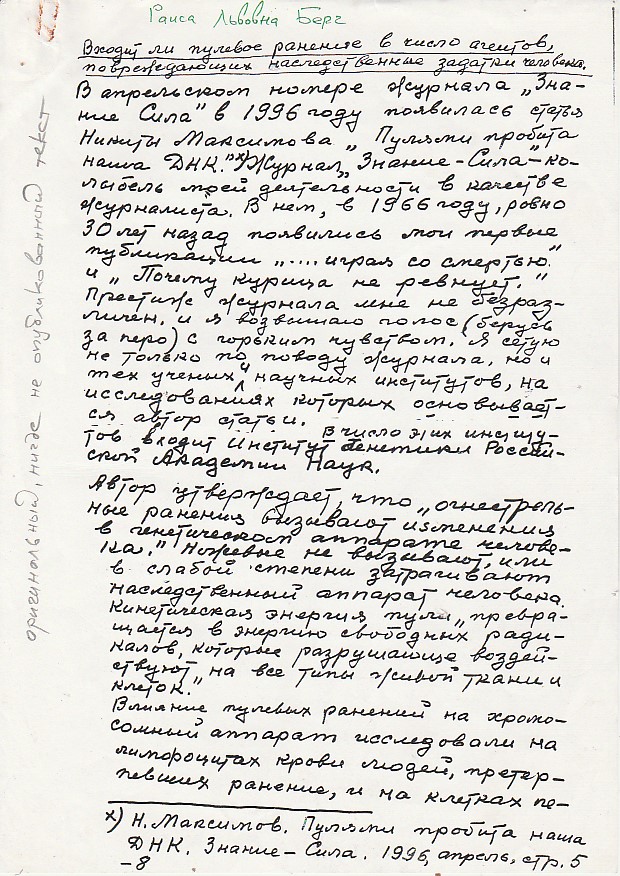 Раиса Львовна Берг
Входит ли пулевое ранение в число агентов,
повреждающих наследственные задатки человека.
В апрельском номере журнала „Зна-
ние Сила" в 1996 году появилась статья
Никиты Максимова „Пулями пробита
наша ДНК."х) Журнал „Знание-Сила"-ко-
лыбель моей деятельности в качестве
журналиста. В нем, в 1966 году, ровно
30 лет назад появились мои первые
публикации „....играя со смертью."
и „Почему курица не ревнует."
Престиж журнала мне не безраз-
личен, и я возвышаю голос (берусь
за перо) с горьким чувством. Я сетую
не только по поводу журнала, но и
тех ученых и научных институтов, на
исследованиях которых основывает-
ся автор статьи. В число этих институ-
тов входит Институт Генетики Россий-
ской Академии Наук.
Автор утверждает, что „огнестрель-
ные ранения вызывают изменения
в генетическом аппарате челове-
ка." Ножевые не вызывают, или
в слабой степени затрагивают
наследственный аппарат человека.
Кинетическая энергия пули „превра-
щается в энергию свободных ради-
калов, которые разрушающе воздей-
ствуют „на все типы живой ткани и
клеток."
Влияние пулевых ранений на хромо-
сомный аппарат исследовали на
лимфоцитах крови людей, претер-
певших ранение, и на клетках пе-
х) Н. Максимов. Пулями пробита наша
ДНК. Знание-Сила. 1996, апрель, стр. 5
-8
оригинальный, нигде не опубликованный текст